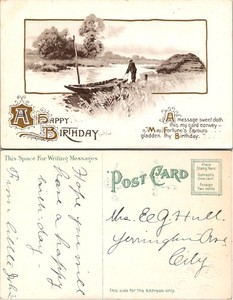 A Happy
Birthday
A message sweet doth
this my card convey
May Fortune's favours
gladden thy Birthday.
This Space For Writing Messages
Hope you will
have a happy
birthday
From
Post Card
Place Postage
Stamp Here
Domestic
One cent
Foreign
Two cents
Mrs. E. G. Hull
Yerrington Ave
City
This side for the Address only